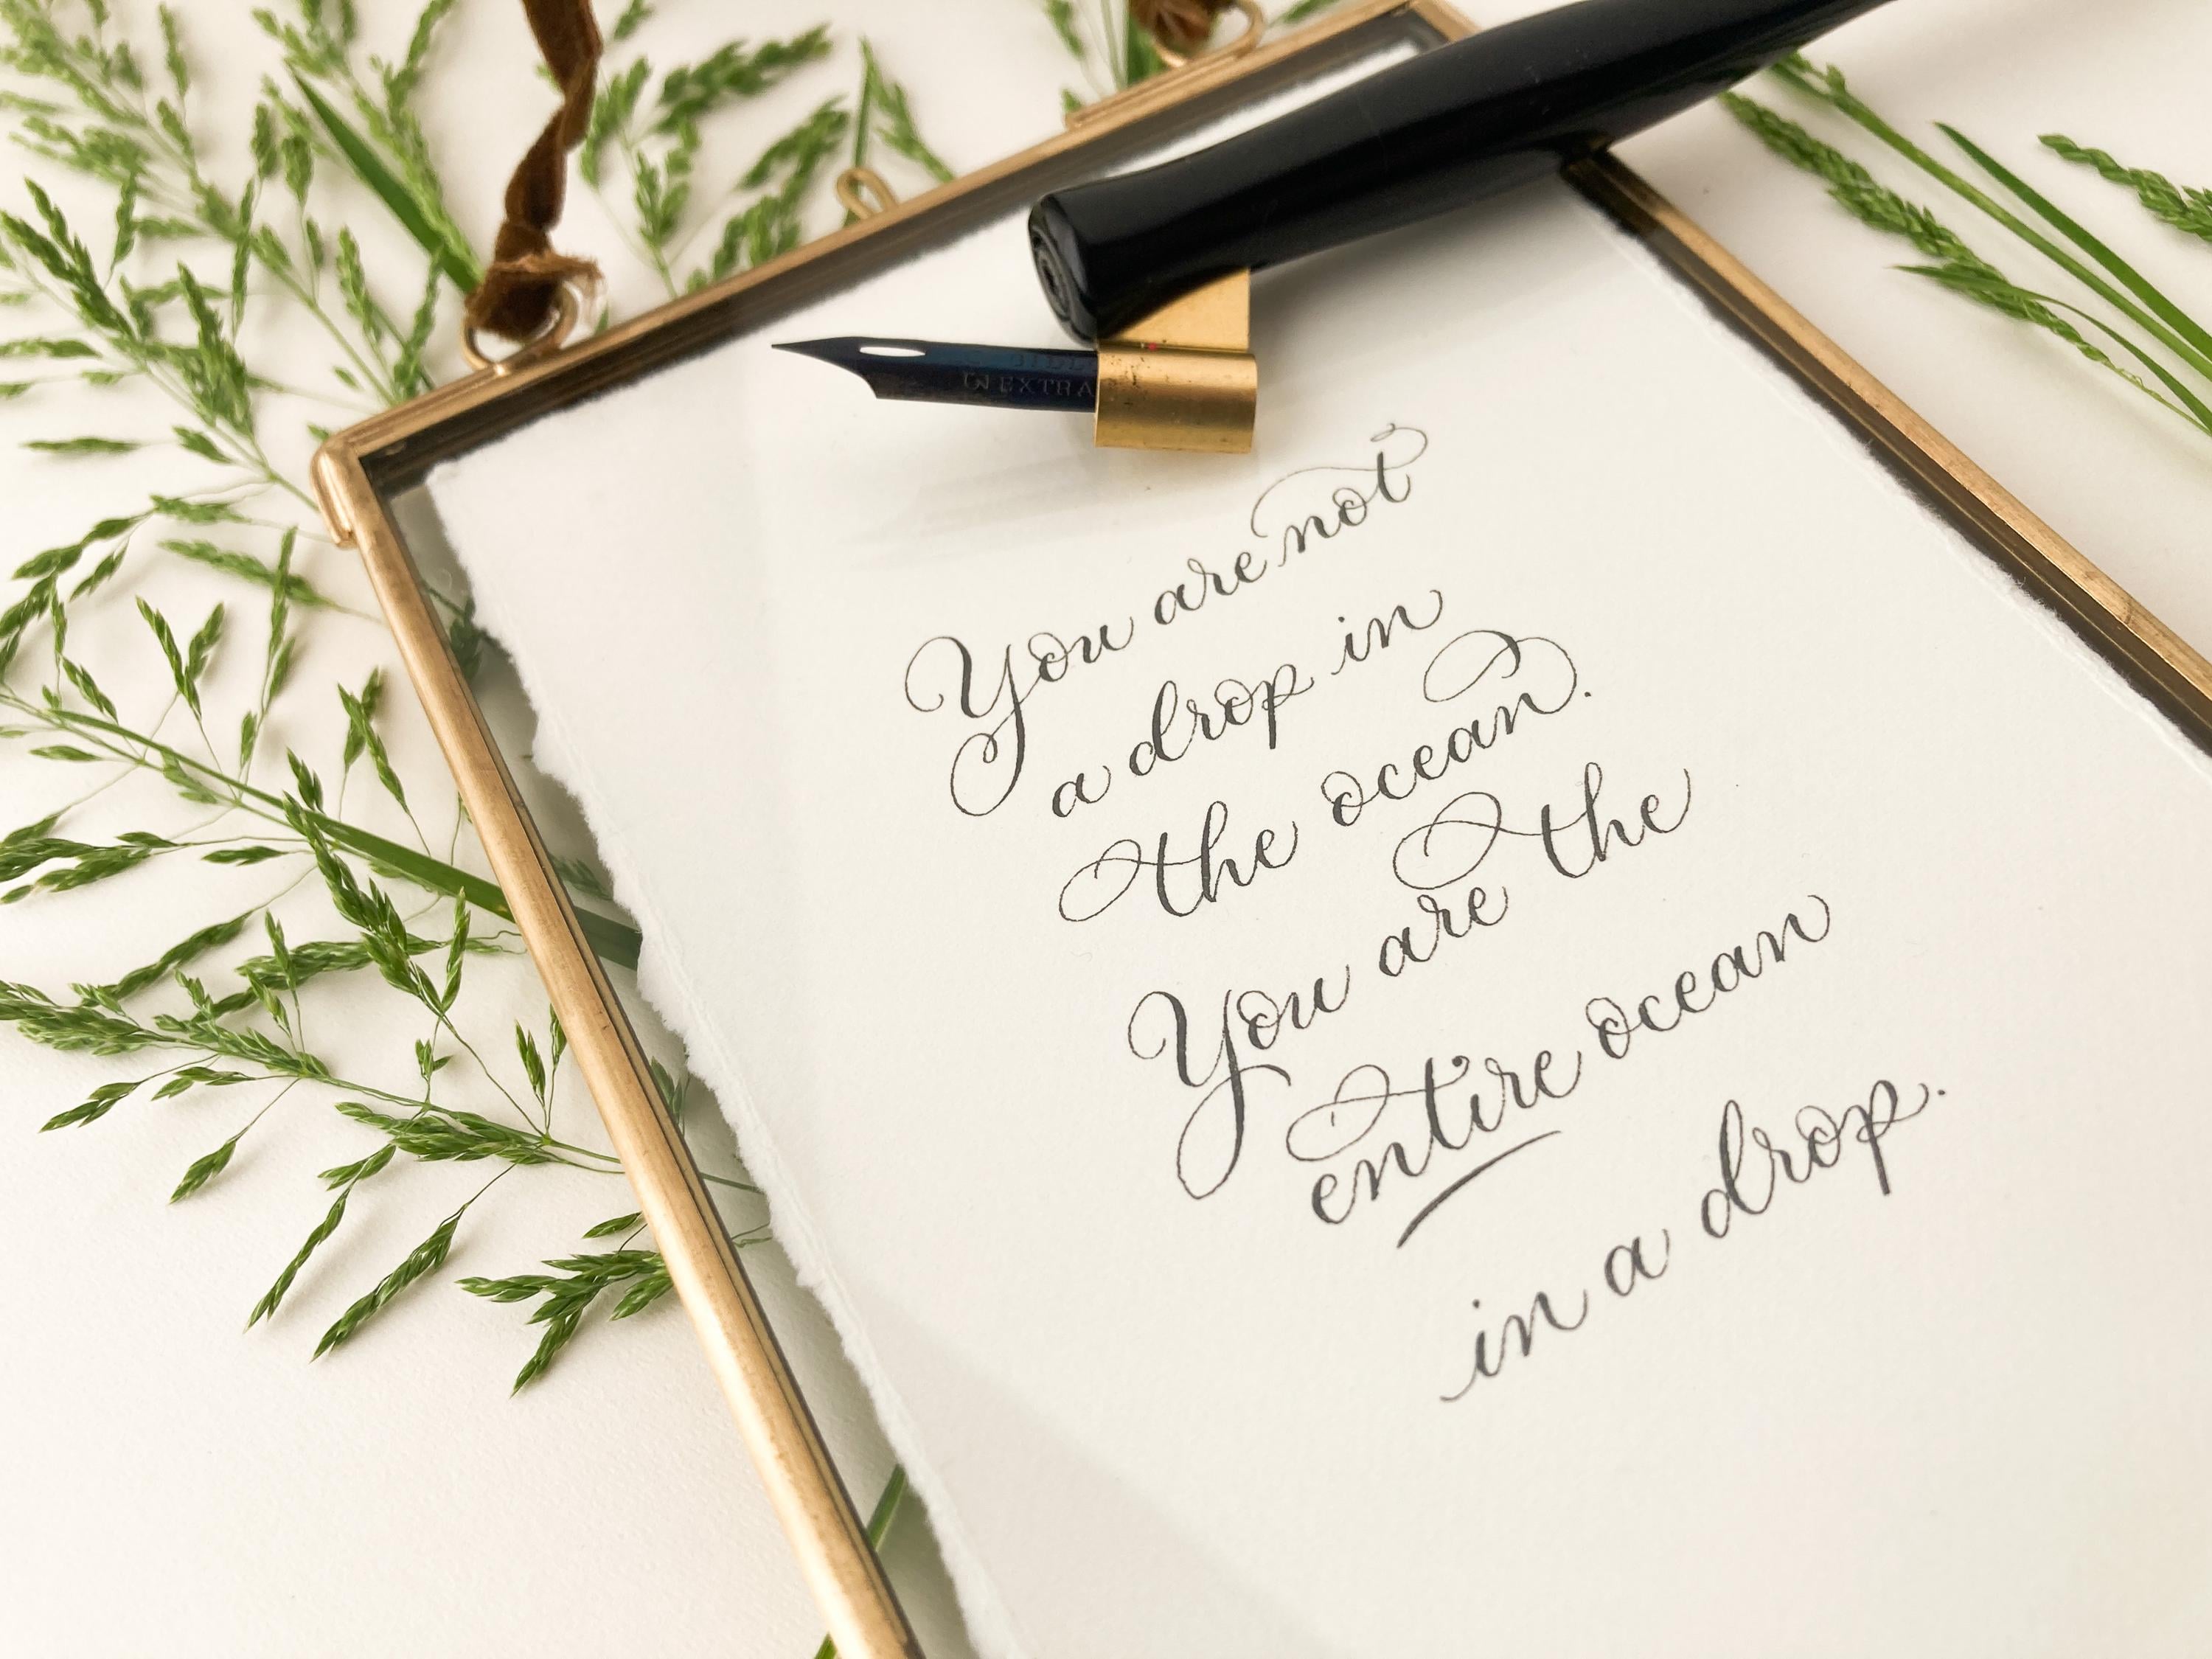 EXTRA
You are not
a drop in
the ocean.
You are the
entire ocean
in a drop.